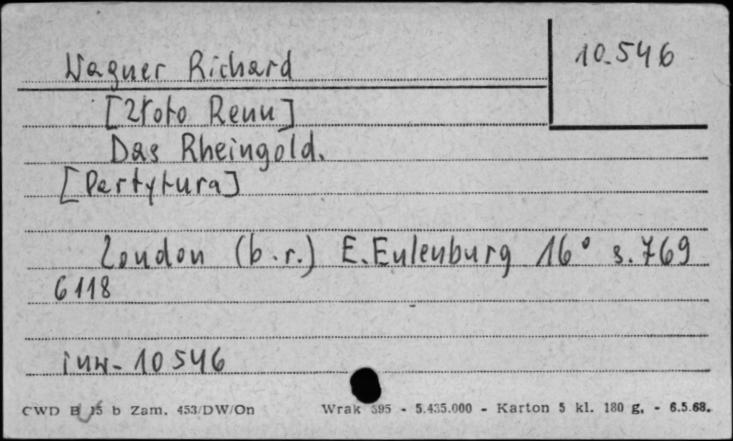 10.546
Wagner Richard
[Złoto Renu]
Das Rheingold.
[Partytura]
London (b.r.) E.Eulenburg 16° s.769
6118
inw. 10546
CWD B 15 b Zam. 453/DW/On Wrak 395 - 5.435.000 - Karton 5 kl. 180 g. - 6.5.68.